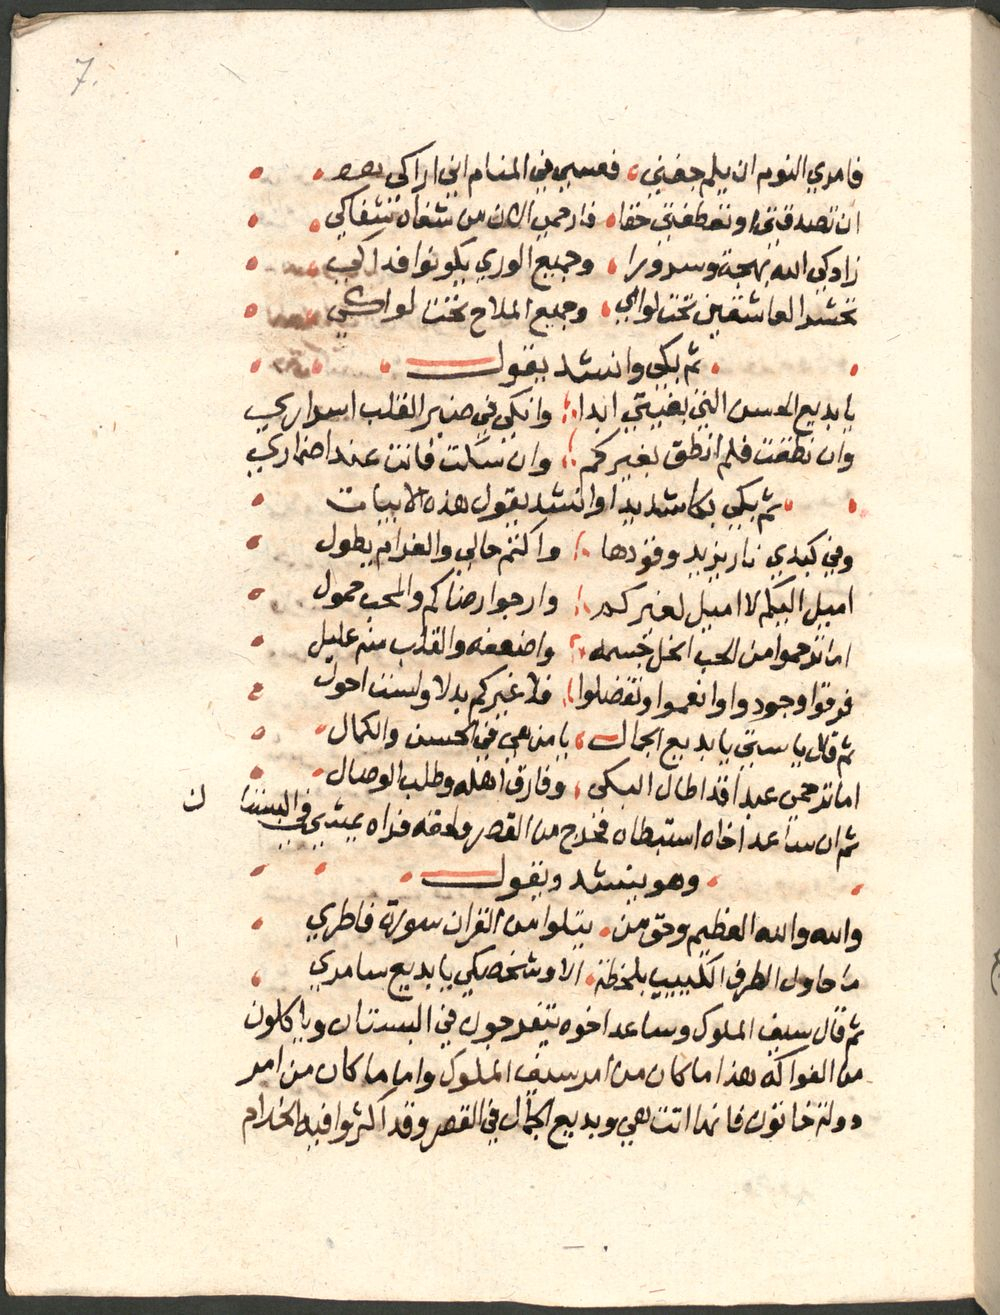 7.
فامري النوم ان يلم جفني فعسي في المنام اني اراكي
ان تصدقتي او تعطفتي حقا فارحمي الان من شفاه شفاكي
زادكي الله بهجة وسرورا وجميع الوري يكونوا فداكي
تحشد العاشقين تحت لوائي وجميع الملاح تحت لواكي
ثم بكي وانشد يقول
يا بديع الحسن انتي بغيتي ابدا وانكي في ضمير القلب اسراري
وان نطقت فلم انطق بغيركم وان سكت فانت عند اضماري
ثم بكي بكا شديدا وانشد يقول هذه الابيات
وفي كبدي نار يزيد وقودها واكتم حالي والغرام يطول
اميل اليكم لا اميل لغيركم وارجوا رضاكم والمحب حمول
اما ترحموا من الحب انحل جسمه واضعفه والقلب منه عليل
فرقوا وجودوا وانعموا وتفضلوا فلا غيركم بدلا ولست احول
ثم قال يا ستي يا بديع الجمال يا من هي في الحسن والكمال
اما ترحمي عبدا قد اطال البكي وفارق اهله وطلب الوصال
ثم ان ساعد اخاه استبطاه فخرج من القصر ولحقه فراه يمشي في البستان
وهو ينشد ويقول
والله والله العظيم وحق من يتلوا من القران سورة فاطري
ما حاول الطرف الكييب بلحظة الا وشخصكي يا بديع سامري
ثم قال سيف الملوك وساعد اخوه يتفرجون في البستان وياكلون
من الفواكه هذا ما كان من امر سيف الملوك واما ما كان من امر
دولة خاتون فانها اتت هي وبديع الجمال في القصر وقد اكثروا فيه الخدام